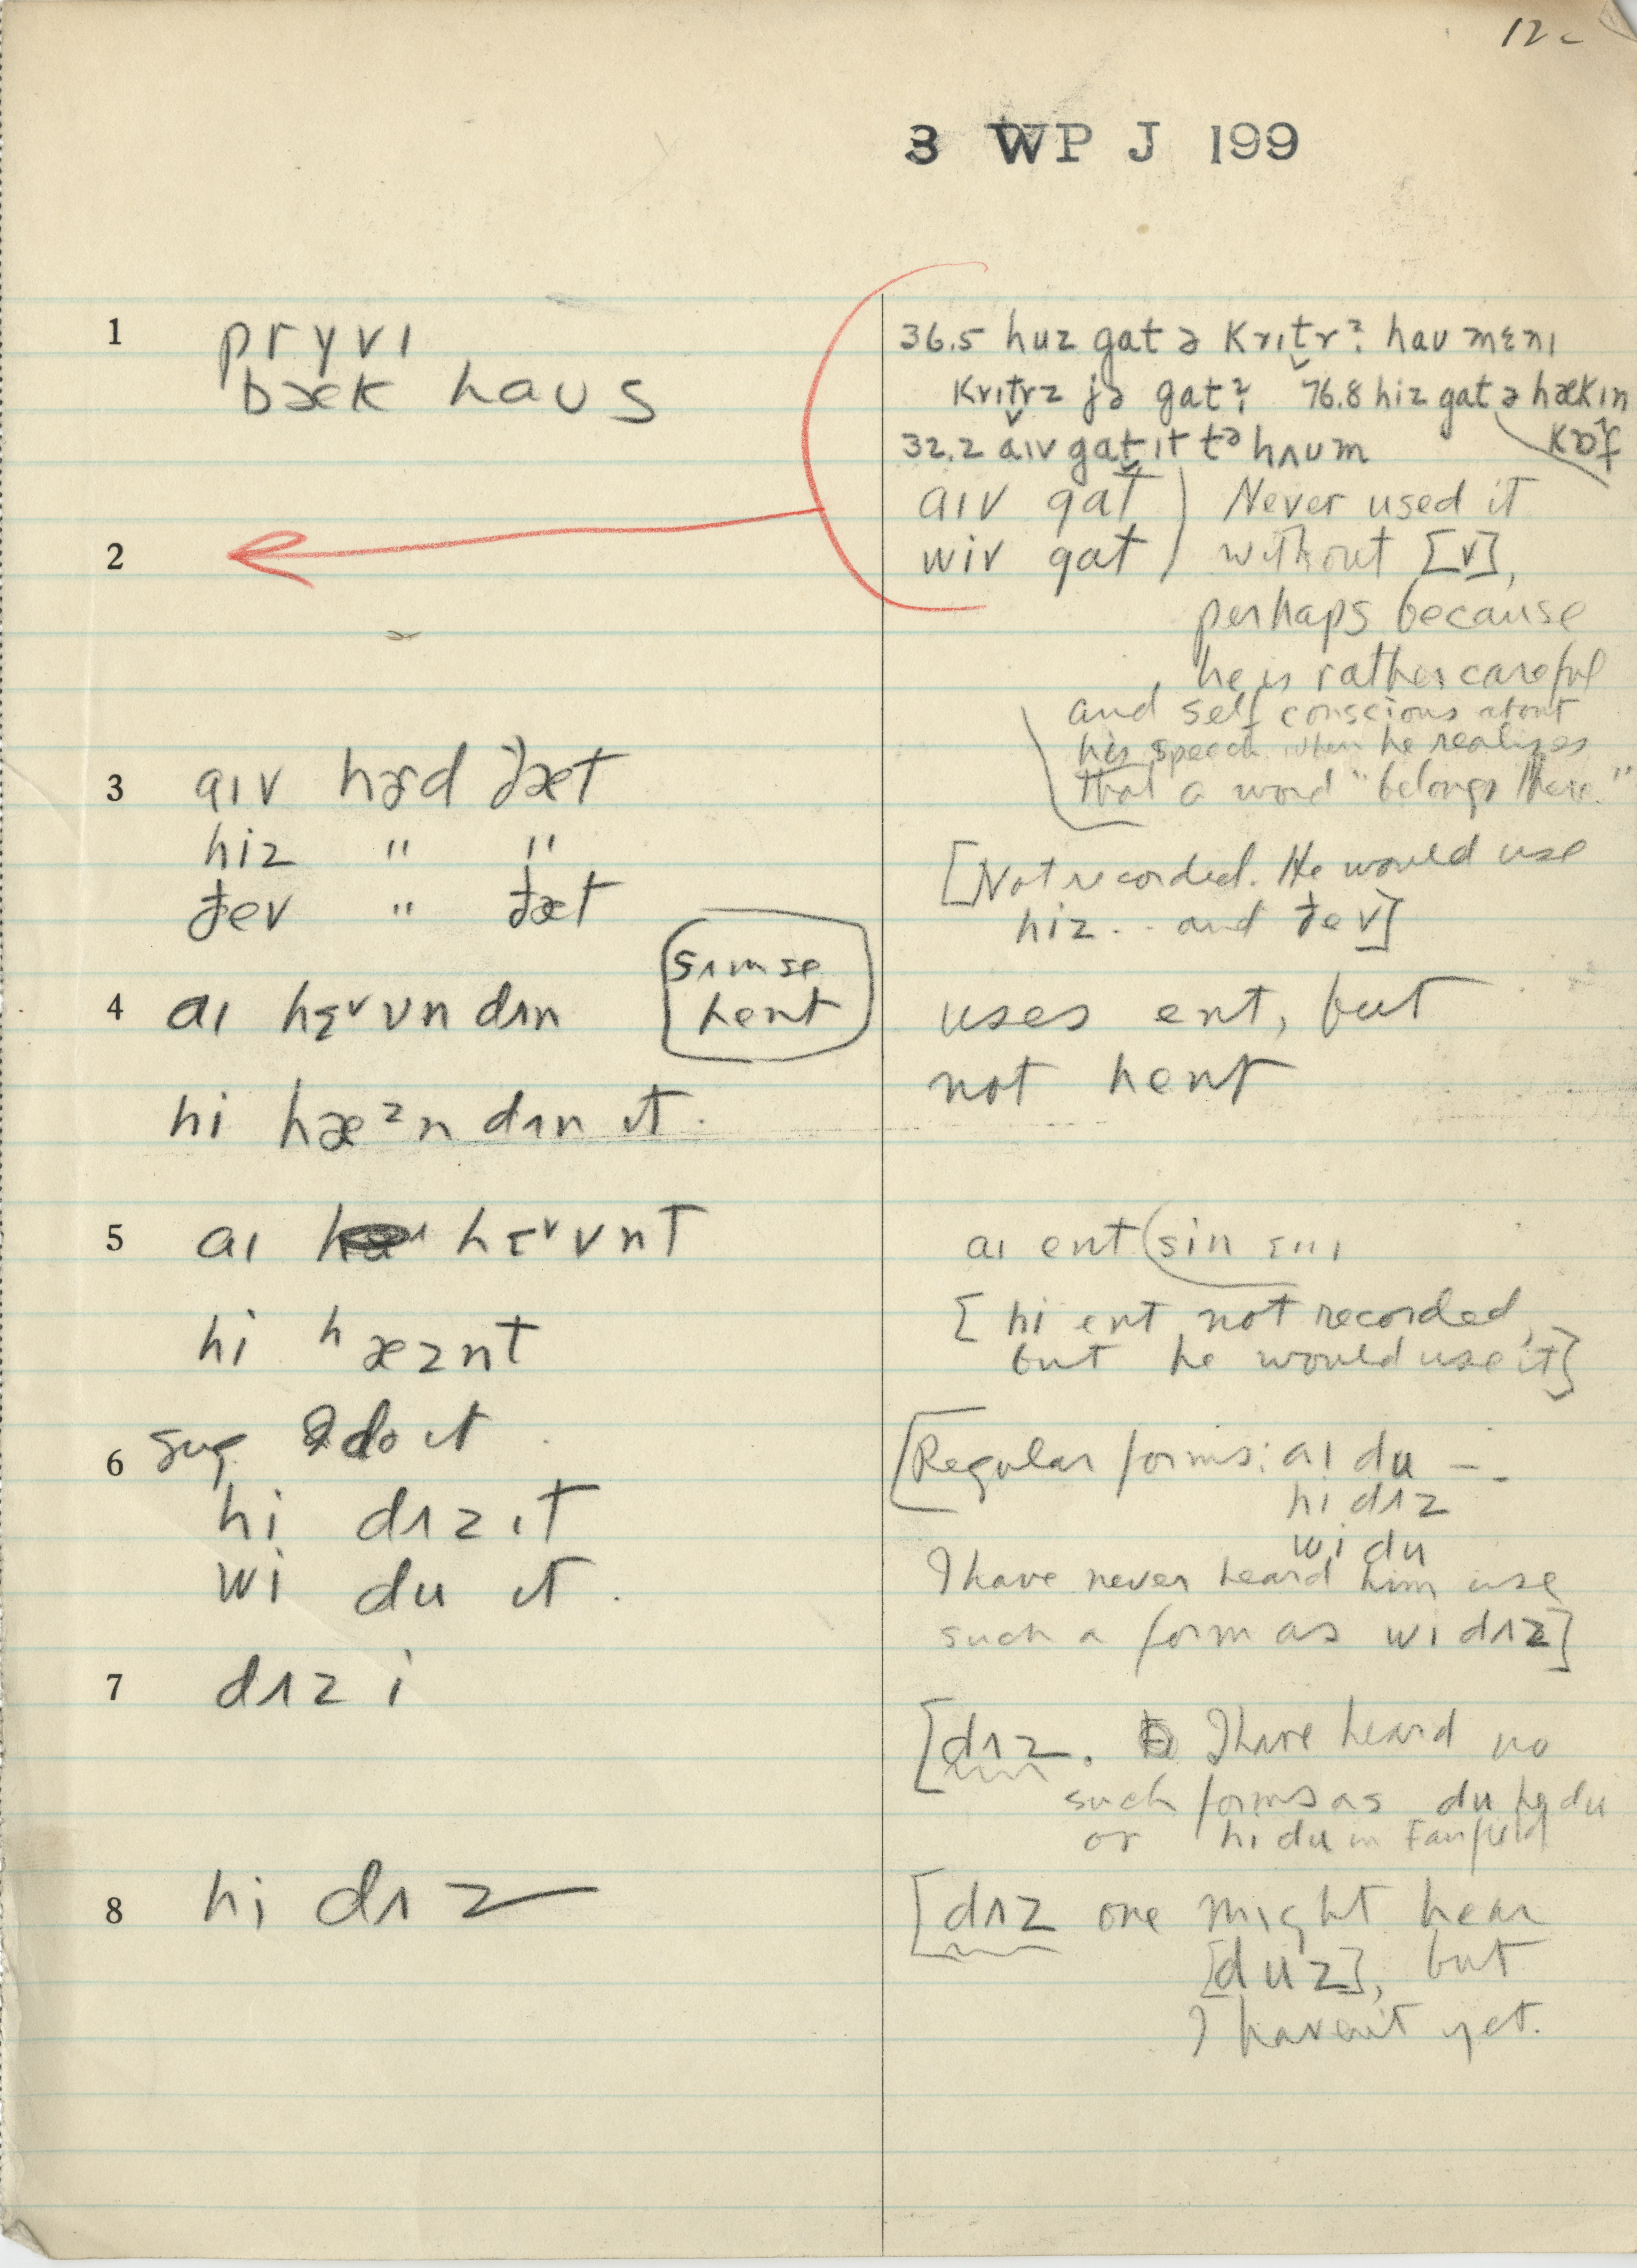 12
3 WP J 199
1 prɣvɪ
bæk haus
36.5 huz gat ə krɪt̬r? hau mɛnɪ
krɪt̬rz jə gat? 76.8 hiz gat ə hækɪn
kɒf
32.2 aɪv gat̬ ɪt tə hʌum
aɪv gat ) Never used it
2 wiv gat ) without [v],
perhaps because
he is rather careful
and self conscious about
his speech when he realizes
that a word "belongs there."
3 aɪv hɚd ðæt
hiz " "
ðev " ðæt
[Not recorded. He would use
hiz .. and ðev]
sʌm se
hent
4 aɪ hɛᵛvn dʌn
uses ent, but
not hent
hi hæᶻn dʌn ɪt.
5 aɪ hɛᵛvnt
aɪ ent sin ɛnɪ
hi ʰæznt
[hi ent not recorded,
but he would use it]
6 sug. I do it.
hi dʌz ɪt
wi du ɪt.
[Regular forms: aɪ du --
hi dʌz
wi du
I have never heard him use
such a form as wi dʌz]
7 dʌz i
[dʌz. I have heard no
such forms as du hi du
or hi du in Fairfield
8 hi dʌz
[dʌz one might hear
[duz], but
I haven't yet.